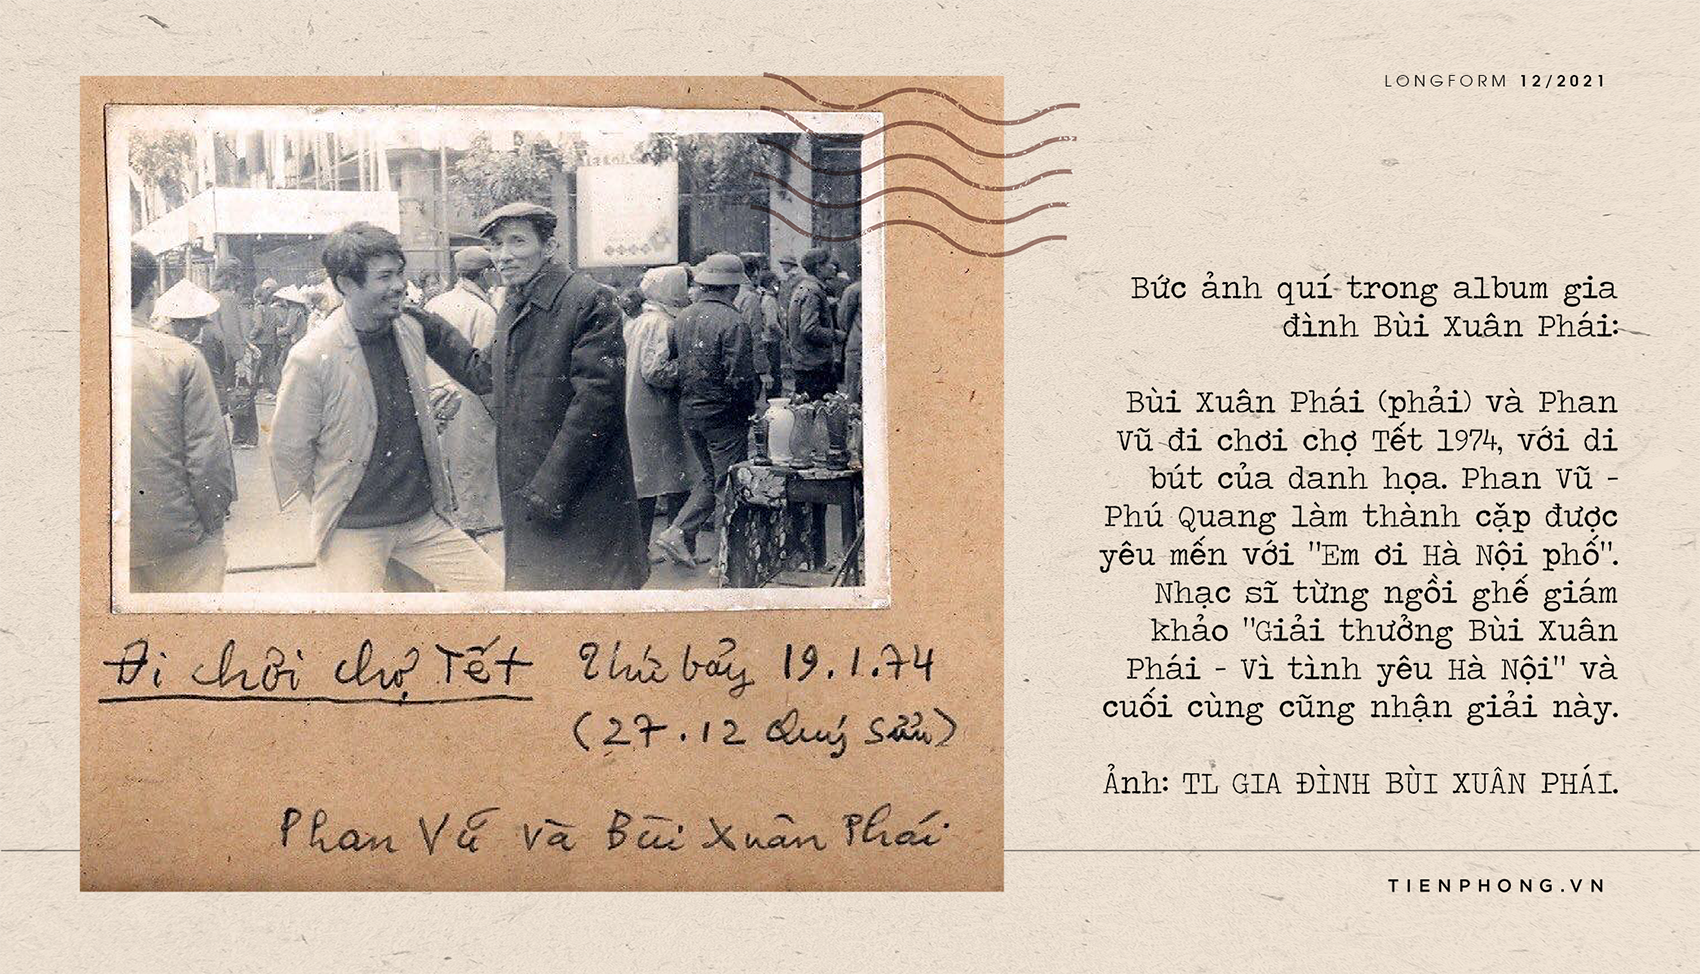 LONGFORM 12/2021
Đi chơi chợ Tết Thứ bảy 19.1.74
(27.12 Quý Sửu)
Phan Vũ và Bùi Xuân Phái
Bức ảnh quí trong album gia
đình Bùi Xuân Phái:
Bùi Xuân Phái (phải) và Phan
Vũ đi chơi chợ Tết 1974, với di
bút của danh họa. Phan Vũ -
Phú Quang làm thành cặp được
yêu mến với "Em ơi Hà Nội phố".
Nhạc sĩ từng ngồi ghế giám
khảo "Giải thưởng Bùi Xuân
Phái - Vì tình yêu Hà Nội" và
cuối cùng cũng nhận giải này.
Ảnh: TL GIA ĐÌNH BÙI XUÂN PHÁI.
TIENPHONG.VN